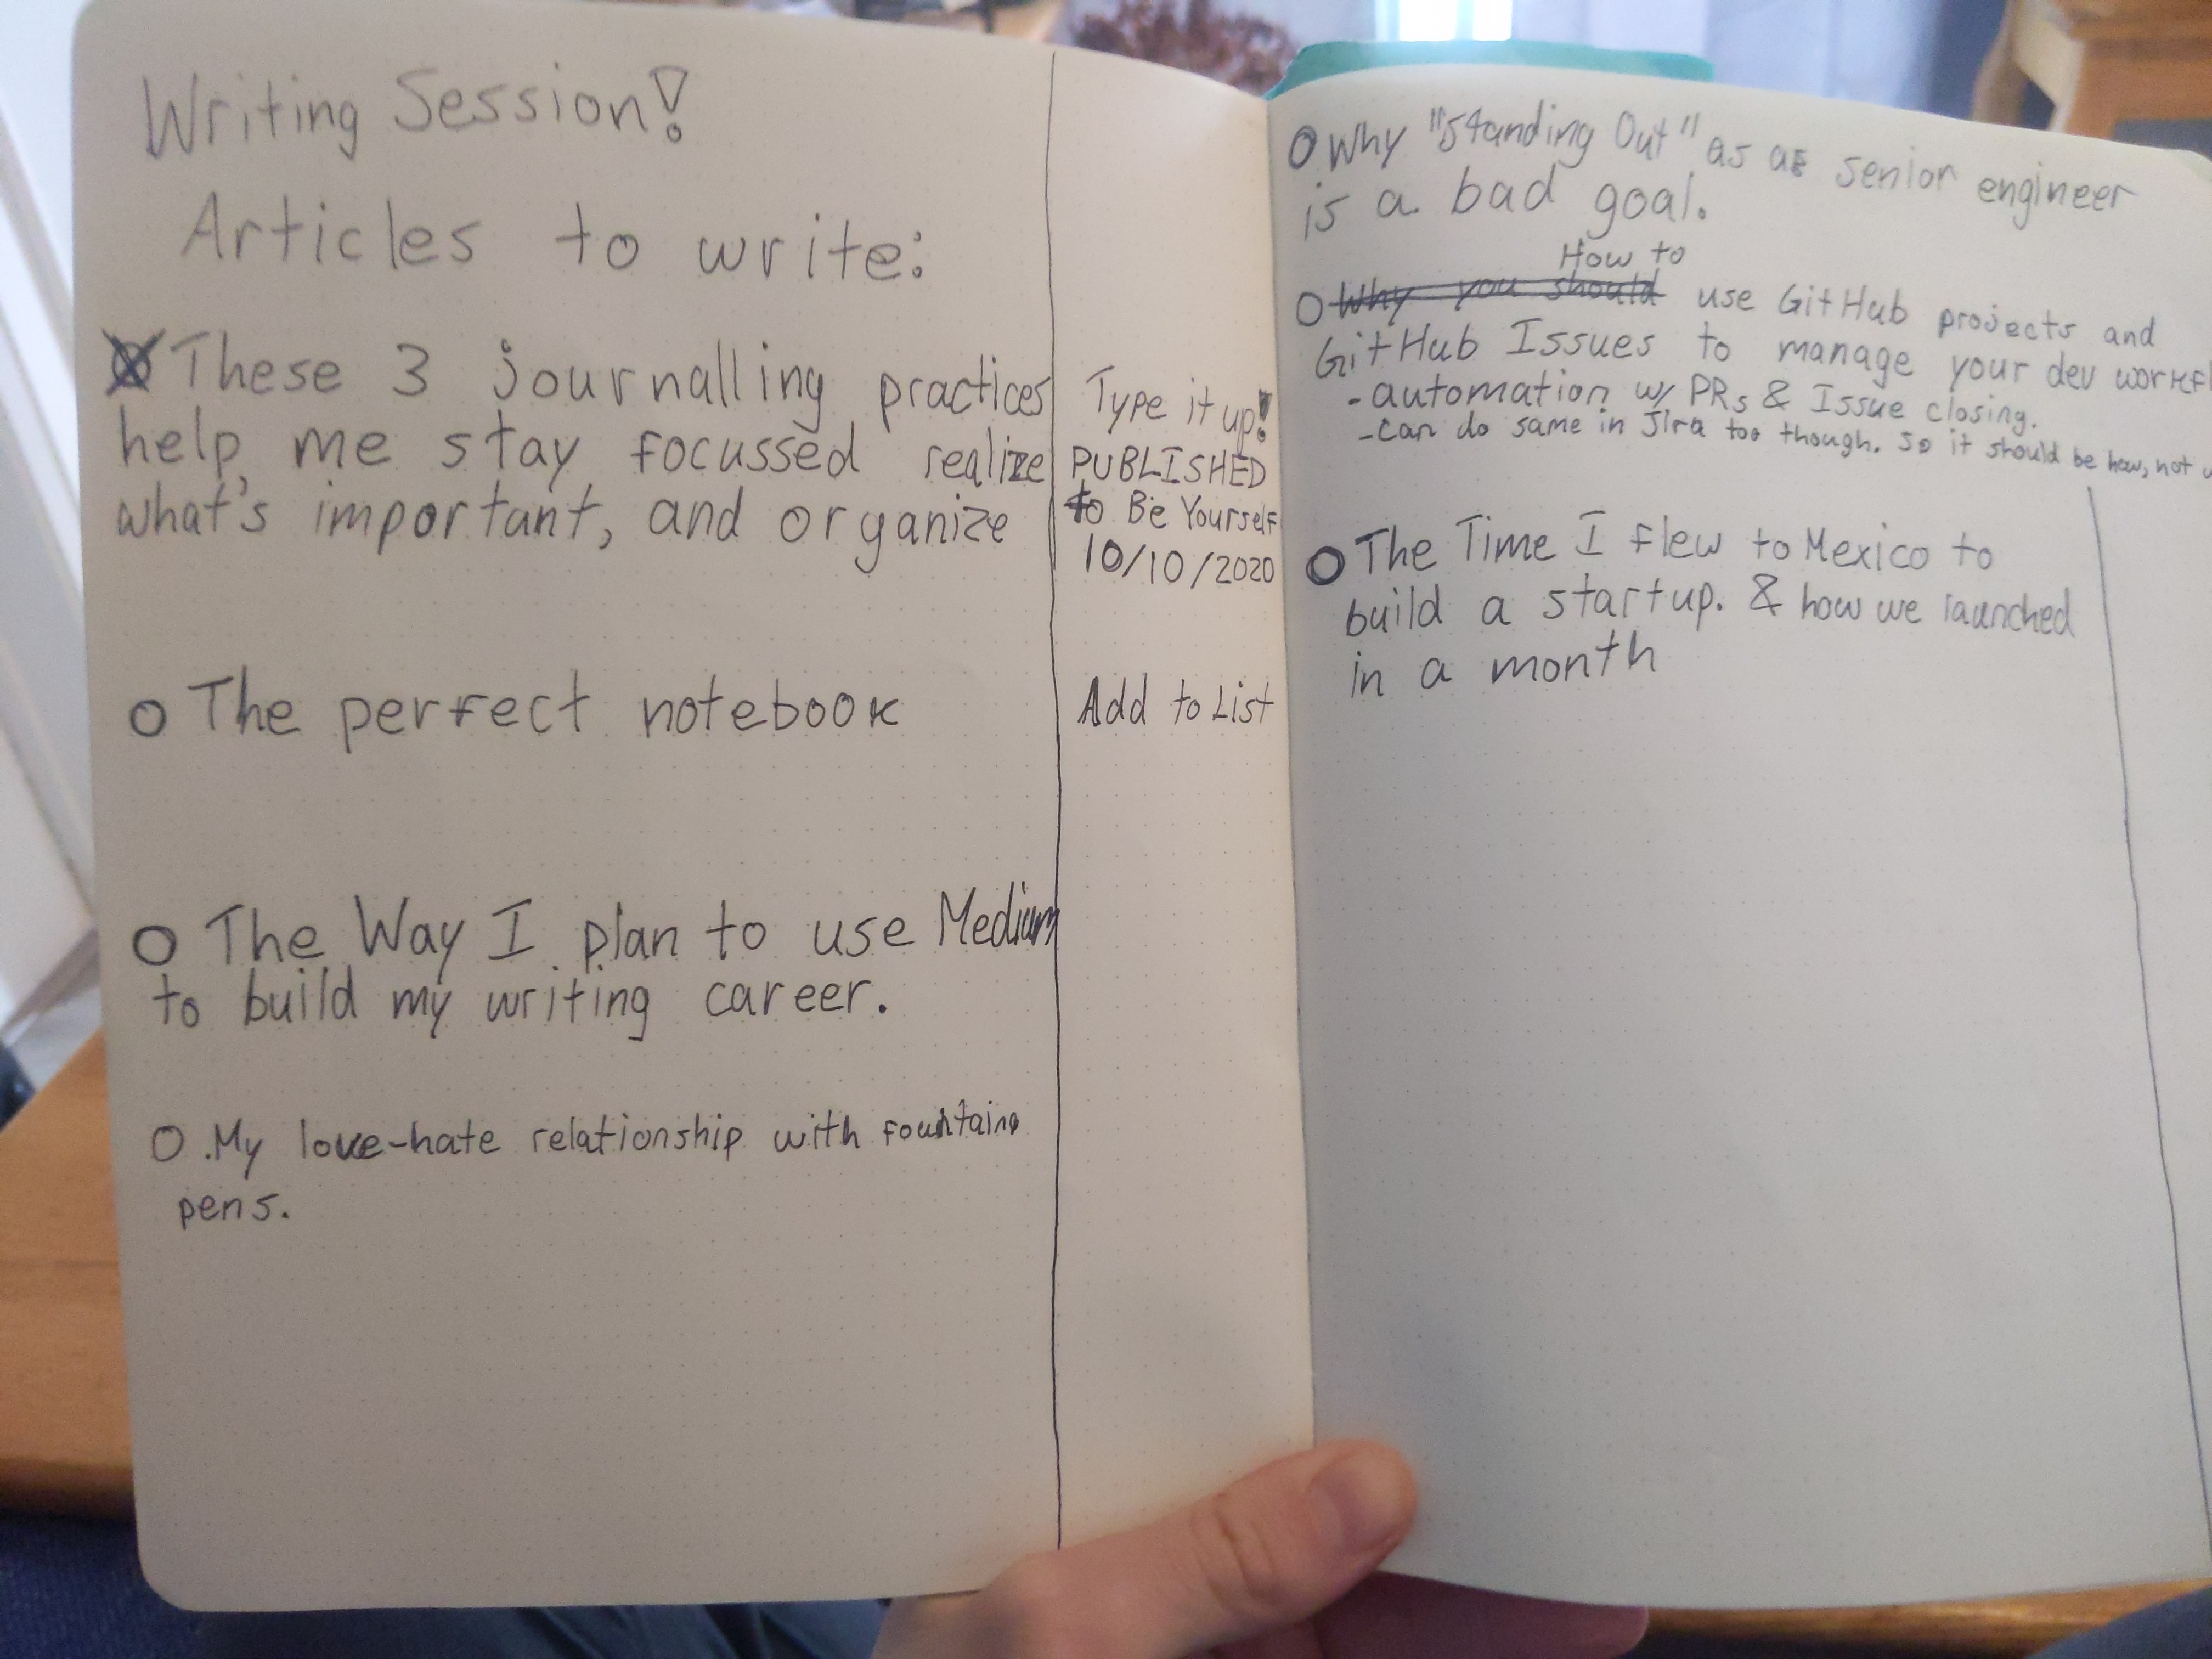 Writing Session!
Articles to write:
These 3 journalling practices
help me stay focussed realize
what's important, and organize
Type it up!
PUBLISHED
to Be Yourself
10/10/2020
The perfect notebook
Add to List
The Way I plan to use Medium
to build my writing career.
My love-hate relationship with fountain
pens.
Why "Standing Out" as a senior engineer
is a bad goal.
How to
Why you should use GitHub projects and
GitHub Issues to manage your dev workfl
- automation w/ PRs & Issue closing.
- Can do same in Jira too though. So it should be how, not
The Time I flew to Mexico to
build a startup. & how we launched
in a month